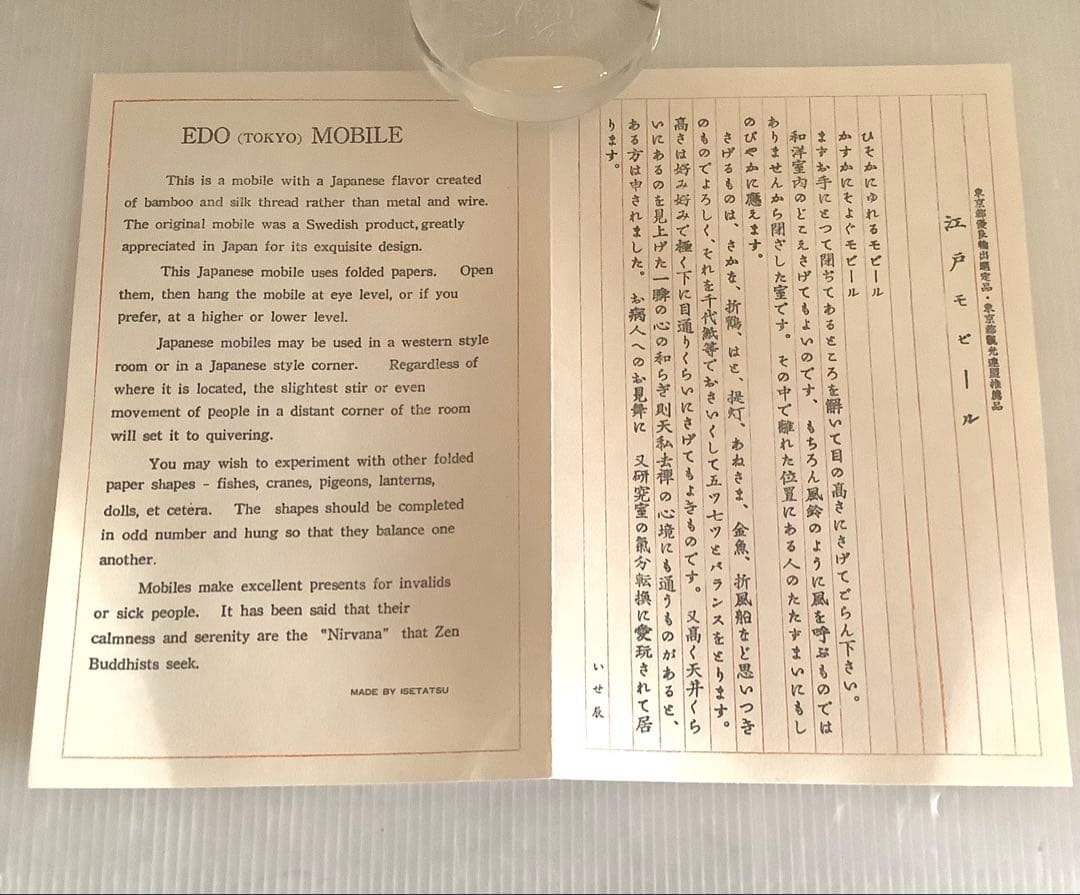 EDO (TOKYO) MOBILE
This is a mobile with a Japanese flavor created
of bamboo and silk thread rather than metal and wire.
The original mobile was a Swedish product, greatly
appreciated in Japan for its exquisite design.
This Japanese mobile uses folded papers. Open
them, then hang the mobile at eye level, or if you
prefer, at a higher or lower level.
Japanese mobiles may be used in a western style
room or in a Japanese style corner. Regardless of
where it is located, the slightest stir or even
movement of people in a distant corner of the room
will set it to quivering.
You may wish to experiment with other folded
paper shapes - fishes, cranes, pigeons, lanterns,
dolls, et cetera. The shapes should be completed
in odd number and hung so that they balance one
another.
Mobiles make excellent presents for invalids
or sick people. It has been said that their
calmness and serenity are the "Nirvana" that Zen
Buddhists seek.
MADE BY ISETATSU
東京都優良輸出選定品・東京都観光連盟推薦品
江戸モビール
ひそかにゆれるモビール
かすかにそよぐモビール
まずお手にとつて閉ぢてあるところを解いて目の高さにさげてごらん下さい。
和洋室内のどこえさげてもよいのです、もちろん風鈴のように風を呼ぶものでは
ありませんから閉ざした室です。その中で離れた位置にある人のたたずまいにもし
のびやかに應えます。
さげるものは、さかな、折鶴、はと、提灯、あねさま、金魚、折風船など思いつき
のものでよろしく、それを千代紙等でおきいくして五ツ七ツとバランスをとります。
高さは好み好みで極く下に目通りくらいにさげてもよきものです。又高く天井くら
いにあるのを見上げた一瞬の心の和らぎ則天私去禅の心境にも通うものがあると、
ある方は申されました。お病人へのお見舞に 又研究室の氣分転換に愛玩されて居
ります。
いせ辰